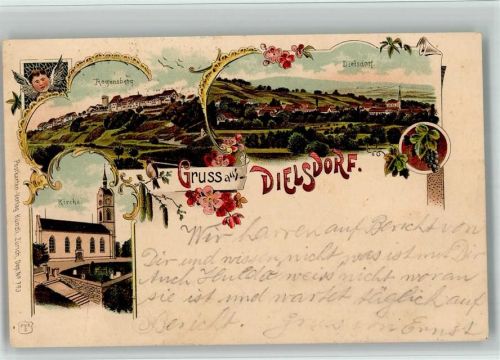 Regensberg
Dielsdorf.
Gruss aus
DIELSDORF.
Kirche
Postkarten-Verlag Künzli, Zürich, Dep. Nº 793
Wir harren auf Bericht von
Dir und wissen nicht was ist mit Dir
Auch Hulda weiss nicht woran
sie ist und wartet täglich auf
Bericht. Gruss von Ernst